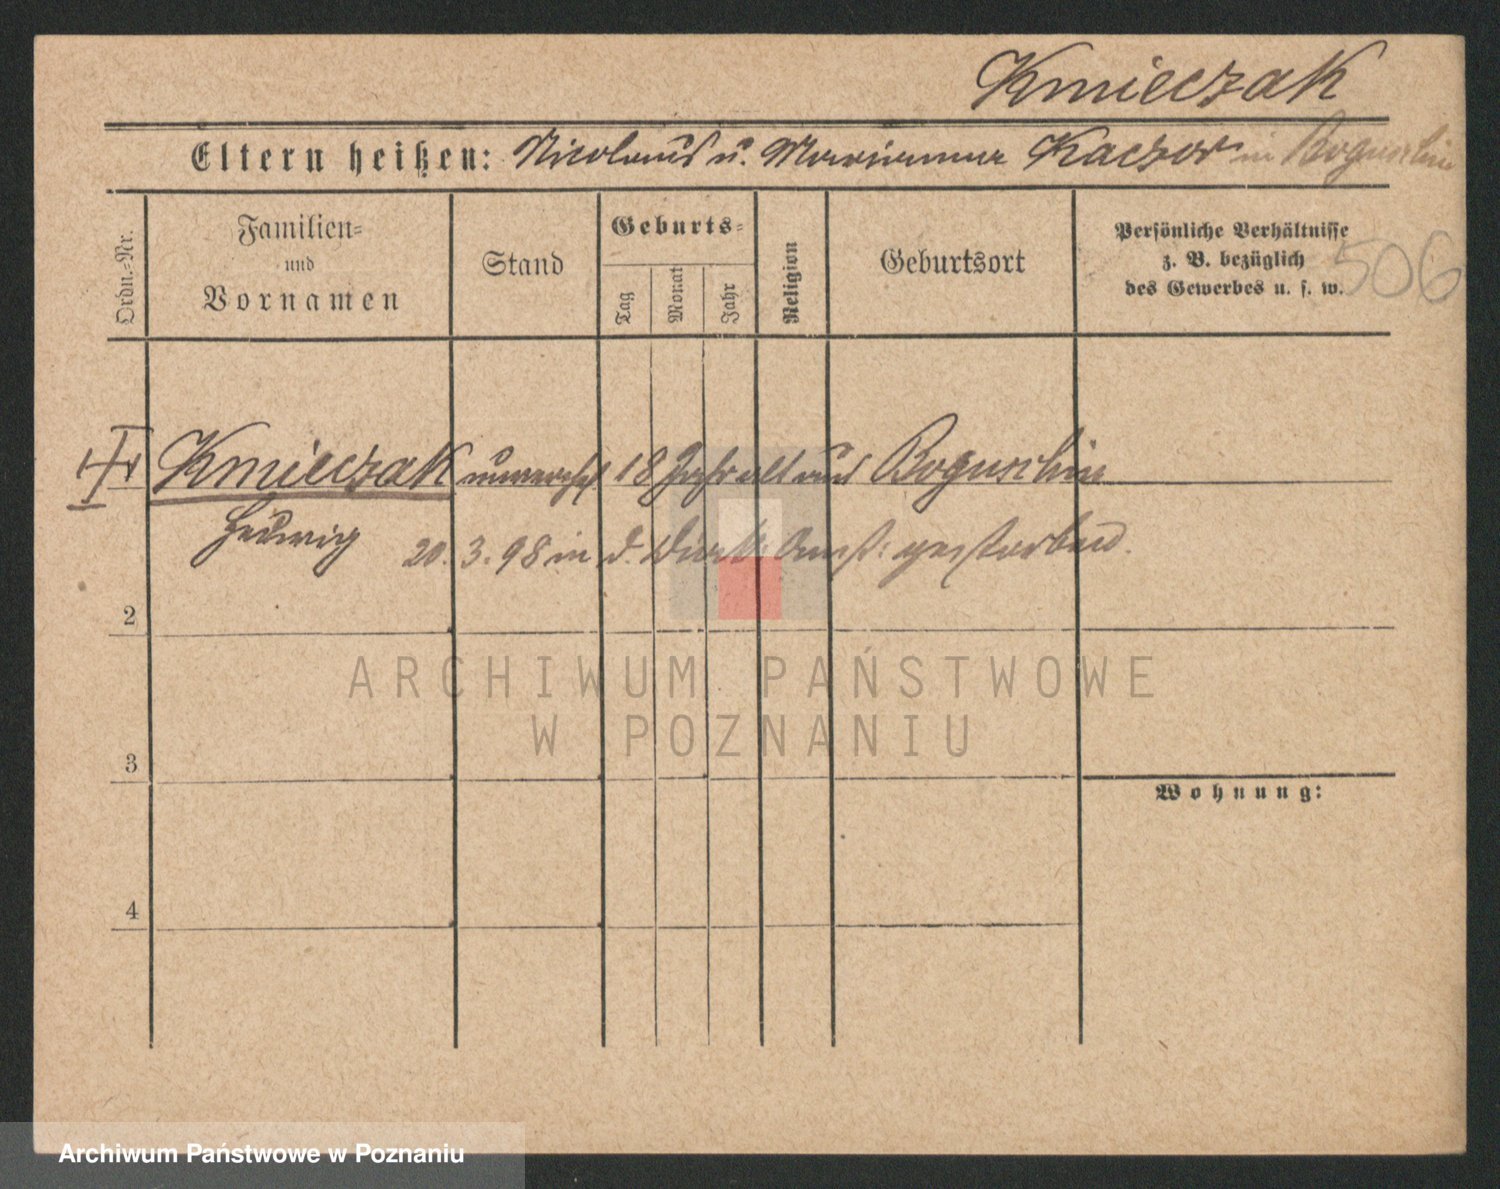 Kmieczak
Eltern heißen: Nicolaus u. Marianna Kaczor in Boguschin
Ordn.=Nr.
Familien=
und
Vornamen
Stand
Geburts=
Tag
Monat
Jahr
Religion
Geburtsort
Persönliche Verhältnisse
z. B. bezüglich
des Gewerbes u. s. w.
506
Kmieczak unvereh. 18 Jahr alt aus Boguschin
Hedwig
20. 3. 98 in d. Diak. Anst. gestorben.
2
3
4
Wohnung:
ARCHIWUM PAŃSTWOWE
W POZNANIU
Archiwum Państwowe w Poznaniu